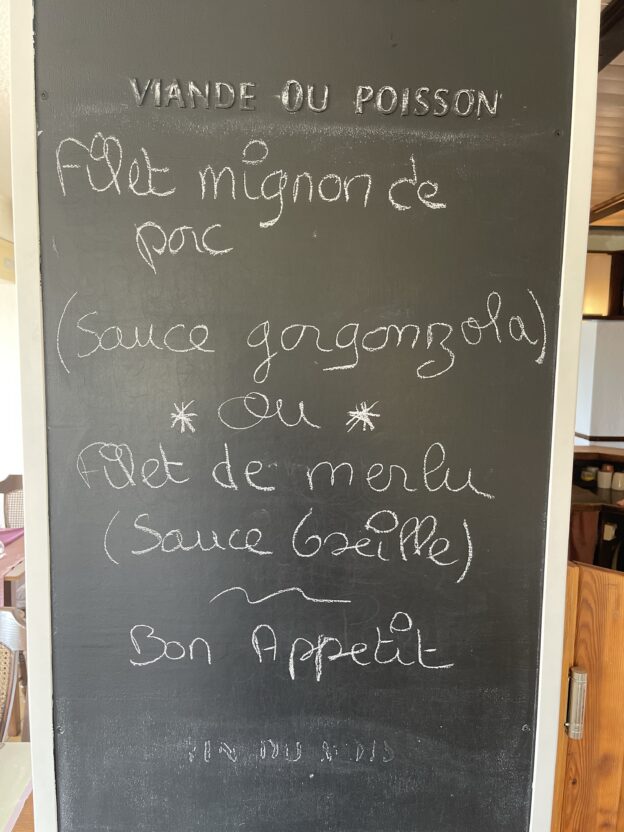 VIANDE OU POISSON
Filet mignon de
porc
(Sauce gorgonzola)
* Ou *
Filet de merlu
(Sauce Oseille)
Bon Appetit
VIN DU MOIS